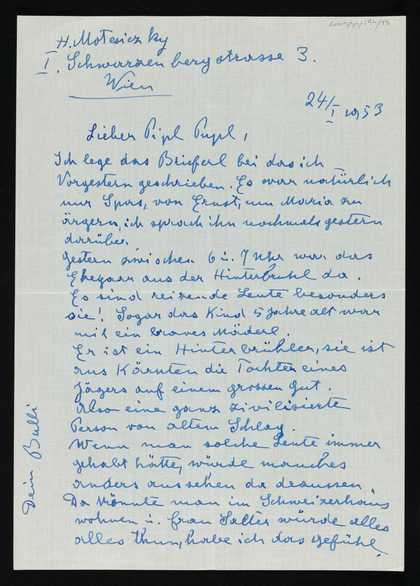 H. Motesiczky
I. Schwarzenbergstrasse 3.
Wien
24/I 1953
Lieber Pipl Pupl,
Ich lege das Brieferl bei das ich
Vorgestern geschrieben. Es war natürlich
nur Spas, von Ernst, um Maria zu
ärgern, ich sprach ihn nochmals gestern
darüber.
Gestern zwischen 6 u. 7 Uhr war das
Ehepaar aus der Hinterbrühl da.
Es sind reizende Leute besonders
sie! Sogar das Kind 5 Jahre alt war
mit ein braves Mäderl.
Er ist ein Hinterbrühler, sie ist
aus Kärnten die Tochter eines
Jägers auf einem grossen Gut.
Also eine ganz zivilisierte
Person von altem Schlag.
Wenn man solche Leute immer
gehabt hätte, würde manches
anders aussehen da draussen.
Da könnte man im Schweizerhaus
wohnen u. Frau Salter würde alles
alles thun, habe ich das Gefühl.
Dein Bulli